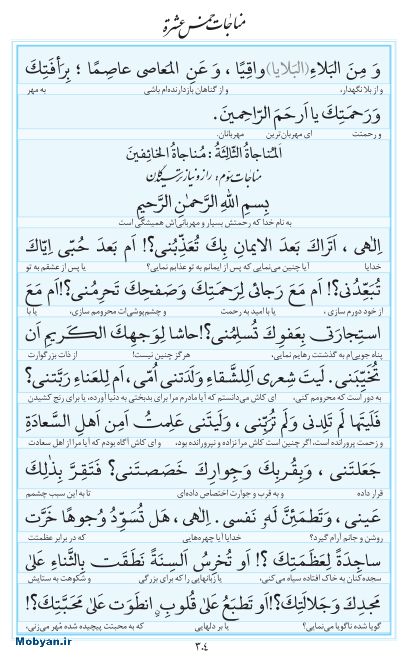 مناجات خمس عشرة
وَ مِنَ البَلاءِ(البَلایا) واقِیًا ، وَ عَنِ المَعاصی عاصِمًا ؛ بِرَأفَتِكَ
و از بلا نگهدار، و از گناهان بازدارنده‌ام باشی به مهر
وَرَحمَتِكَ یا اَرحَمَ الرّاحِمینَ.
و رحمتت ای مهربان‌ترین مهربانان.
اَلمُناجاةُ الثّالِثَةُ : مُناجاةُ الخائِفینَ
مناجات سوم، راز و نیاز ترسیدگان
بِسمِ اللهِ الرَّحمٰنِ الرَّحیمِ
به نام خدا که رحمتش بسیار و مهربانی‌اش همیشگی است
اِلٰهی ، اَتَراكَ بَعدَ الایمانِ بِكَ تُعَذِّبُنی؟! اَم بَعدَ حُبّی اِیّاكَ
خدایا آیا چنین می‌نمایی که پس از ایمانم به تو عذابم نمایی؟ یا پس از عشقم به تو
تُبَعِّدُنی؟! اَم مَعَ رَجائی لِرَحمَتِكَ وَصَفحِكَ تَحرِمُنی؟!اَم مَعَ
از خود دورم سازی ، یا با امید به رحمت و چشم‌پوشی‌ات محرومم سازی، یا با
استِجارَتی بِعَفوِكَ تُسلِمُنی؟!حاشا لِوَجهِكَ الكَریمِ اَن
پناه جویی‌ام به گذشتت رهایم نمایی، هرگز چنین نیست! از ذات بزرگوارت
تُخَیِّبَنی. لَیتَ شِعری اَلِلشَّقاءِ وَلَدَتنی اُمّی، اَم لِلعَناءِ رَبَّتنی؟
به دور است که محرومم کنی، ای کاش می‌دانستم که آیا مادرم مرا برای بدبختی به دنیا آورده، یا برای رنج کشیدن
فَلَیتَها لَم تَلِدنی وَلَم تُرَبِّنی، وَلَیتَنی عَلِمتُ اَمِن اَهلِ السَّعادَةِ
و زحمت پرورانده است، اگر چنین است کاش مرا نزاده و نپرورانده بود، و ای کاش آگاه بودم که آیا مرا از اهل سعادت
جَعَلتَنی ، وَبِقُربِكَ وَجِوارِكَ خَصَصتَنی؟ فَتَقِرَّ بِذٰلِكَ
قرار داده و به قرب و جوارت اختصاص داده‌ای تا به این سبب چشمم
عَینی، وَتَطمَئِنَّ لَهُ نَفسی. اِلٰهی، هَل تُسَوِّدُ وُجوهًا خَرَّت
روشن و جانم آرام گیرد؟ خدایا آیا چهره‌هایی که در برابر عظمتت
ساجِدَةً لِعَظَمَتِكَ ؟! اَو تُخرِسُ اَلسِنَةً نَطَقَت بِالثَّناءِ عَلیٰ
سجده‌کنان به خاک افتاده سیاه می‌کنی، یا زبانهایی را که برای بزرگی و شکوهت به ستایش
مَجدِكَ وَجَلالَتِكَ؟!اَو تَطبَعُ عَلیٰ قُلوبٍ انطَوَت عَلیٰ مَحَبَّتِكَ؟!
گویا شده ناگویا می‌نمایی؟ یا بر دلهایی که به محبتت پیچیده شده مُهر می‌زنی،
۳۰۴
Mobyan.ir